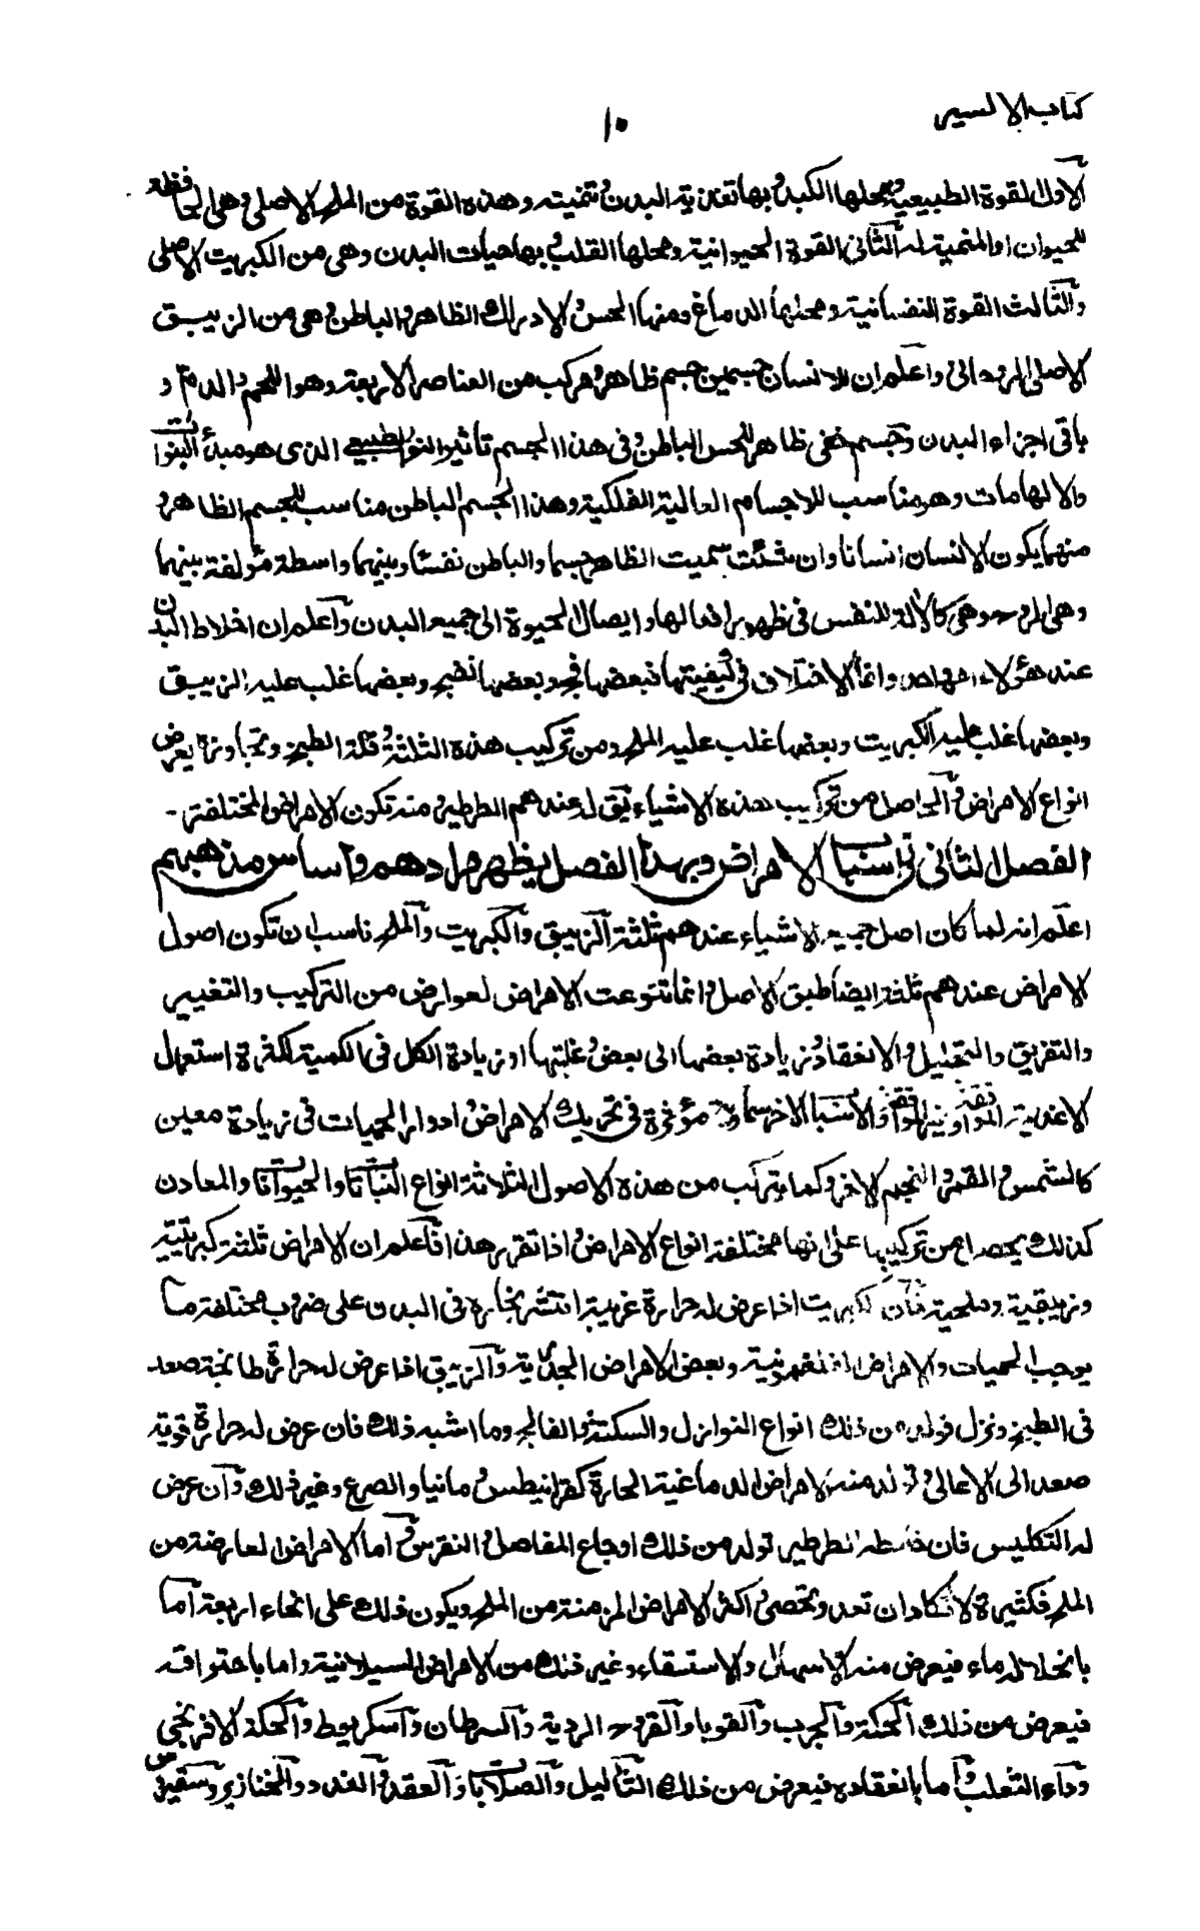 كتاب الاكسير
١٠
الاول القوة الطبيعية ومحلها الكبد وبها تغذية البدن وتنميته وهذه القوة من الملح الاصلي وهي الحافظة
للحيوان او المنمية له والثاني القوة الحيوانية ومحلها القلب وبها حيات البدن وهي من الكبريت الاصلي
والثالث القوة النفسانية ومحلها الدماغ ومنها الحس والادراك الظاهر والباطن وهي من الزيبق
الاصلي الروحاني واعلم ان للانسان جسمين جسم ظاهر ومركب من العناصر الاربعة وهو اللحم والدم و
باقي اجزاء البدن وجسم خفي ظاهر للحس الباطن وفي هذا الجسم تأثير النور الطبيعي الذي هو مبدأ النبوات
والالهامات وهو مناسب للاجسام العالية الفلكية وهذا الجسم الباطن مناسب للجسم الظاهر و
منهما يكون الانسان انسانا وان شئت سميت الظاهر جسما والباطن نفسا وبينهما واسطة مؤلفة بينهما
وهي الروح وهي كالآلة للنفس في ظهور افعالها وايصال الحيوة الى جميع البدن واعلم ان اخلاط البدن
عند هؤلاء وانما الاختلاف في كيفيتها فبعضها فج وبعضها نضيج وبعضها غلب عليه الزيبق
وبعضها غلب عليه الكبريت وبعضها غلب عليه الملح ومن تركيب هذه الثلثة وقلة الطبخ وتجاوزه يعرض
انواع الامراض والحاصل من تراكيب هذه الاشياء يق له عندهم الطرطير ومنه تكون الامراض المختلفة -
الفصل الثاني في اسباب الامراض وبهذا الفصل يظهر مرادهم واساس مذهبهم
اعلم انه لما كان اصل جميع الاشياء عندهم ثلثة الزيبق والكبريت والملح ناسب ان تكون اصول
الامراض عندهم ثلثة ايضا طبق الاصل وانما تنوعت الامراض لعوارض من التركيب والتغيير
والتفريق والتحليل والانعقاد وزيادة بعضها الى بعض وغلبتها او زيادة الكل في الكمية لكثرة استعمال
الاغذية الموافقة وغير الموافقة والاسباب الاخر سماوية مؤثرة في تحريك الامراض وادوار الحميات في زيادة معين
كالشمس والقمر والنجم الاخر وكما يتركب من هذه الاصول الثلاثة انواع النباتات والحيوانات والمعادن
كذلك يحصل من تركيبها على انها مختلفة انواع الامراض واذا تقرر هذا فاعلم ان الامراض ثلثة كبريتية
وزيبقية وملحية فان الكبريت اذا عرض له حرارة غريبة انتشر بخاره في البدن على ضروب مختلفة مما
يوجب الحميات والامراض الفلغمونية وبعض الامراض الجدرية والزيبق اذا عرض له حرارة طابخة صعد
في الطبخ ونزل فولد من ذلك انواع النوازل والسكتة والفالج وما اشبه ذلك فان عرض له حرارة قوية
صعد الى الاعالي وتولد منه الامراض الدماغية الحارة كقرانيطس ومانيا والصرع وغير ذلك وان عرض
له التكليس فان خالطه الطرطير تولد من ذلك اوجاع المفاصل والنقرس واما الامراض العارضة من
الملح فكثيرة لا تكاد ان تعد وتحصى واكثر الامراض المزمنة من الملح ويكون ذلك على انحاء اربعة اما
بانحلاله ماء فيعرض منه الاسهال والاستسقاء وغير ذلك من الامراض السيلانية واما باحتراقه
فيعرض من ذلك الحكة والجرب والقوبا والقروح الردية والسرطان واسكربوط والحكة الافرنجي
وداء الثعلب واما بانعقاده فيعرض من ذلك الثآليل والصلابات والعقد والغدد والخنازير وسقيروس